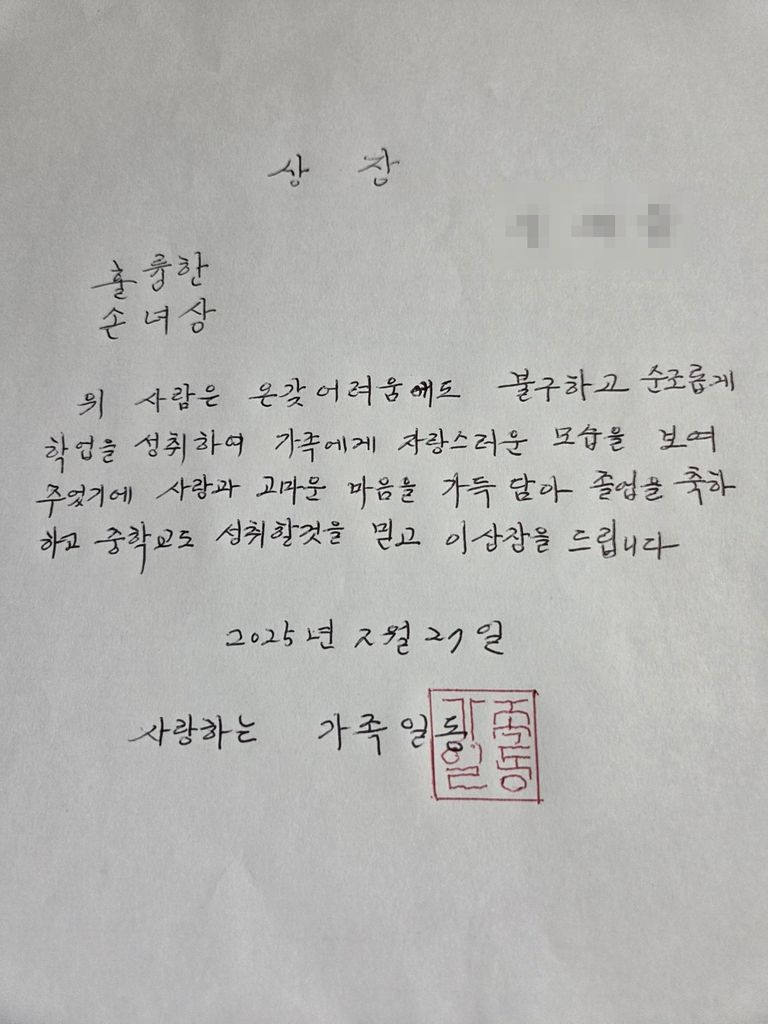 상 장
훌륭한
손녀상
위 사람은 온갖 어려움에도 불구하고 순조롭게
학업을 성취하여 가족에게 자랑스러운 모습을 보여
주었기에 사랑과 고마운 마음을 가득 담아 졸업을 축하
하고 중학교도 성취할것을 믿고 이상장을 드립니다
2025년 2월 27일
사랑하는 가족일동
가족일동